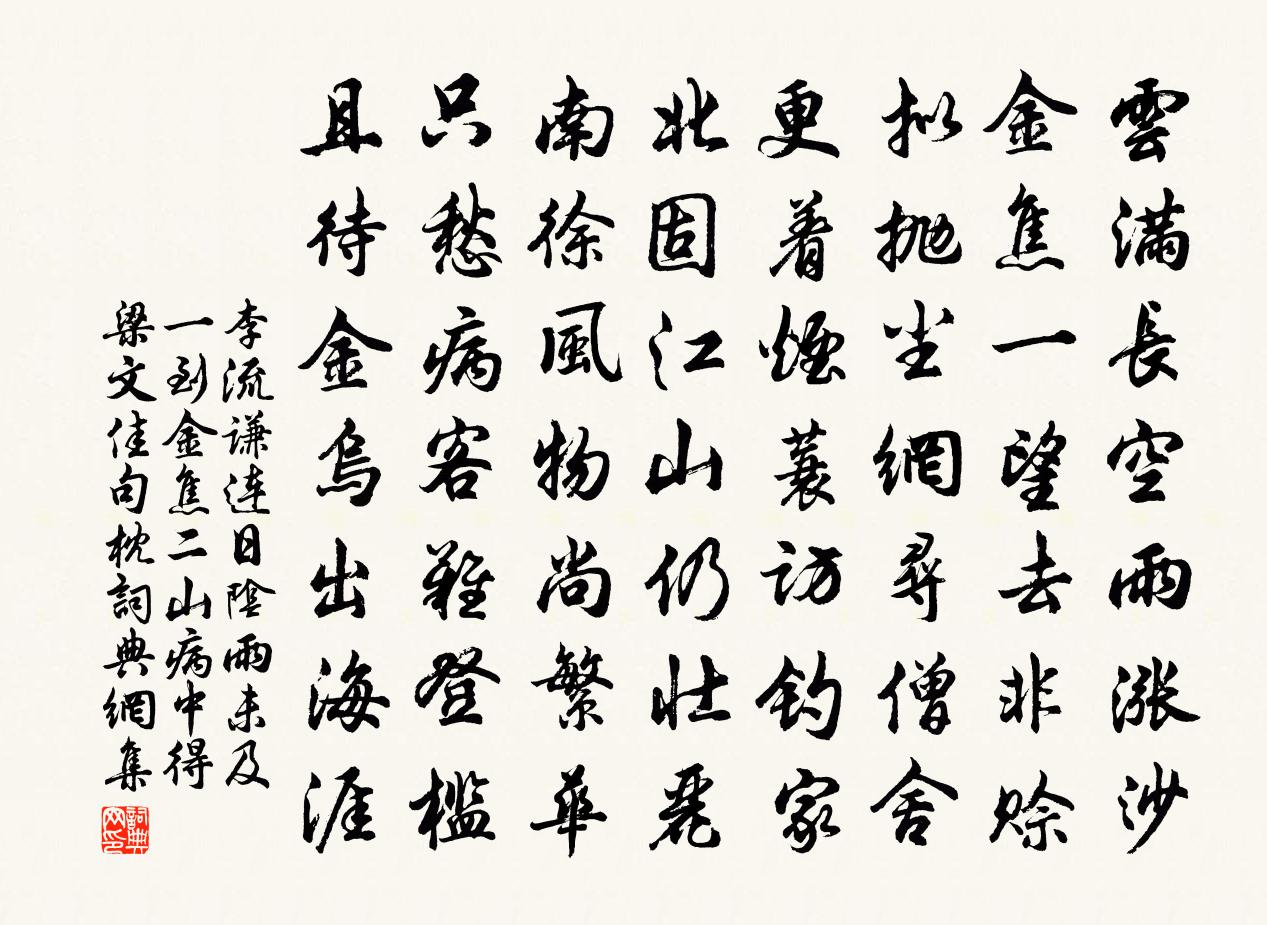 雲滿長空雨漲沙
金焦一望去非賒
拟抛尘網尋僧舍
更着煙蓑訪釣家
北固江山仍壯麗
南徐風物尚繁華
只愁病客難登檻
且待金烏出海涯
李流謙連日陰雨未及
一到金焦二山病中得
梁文佳句枕詞典網集
詞典網印